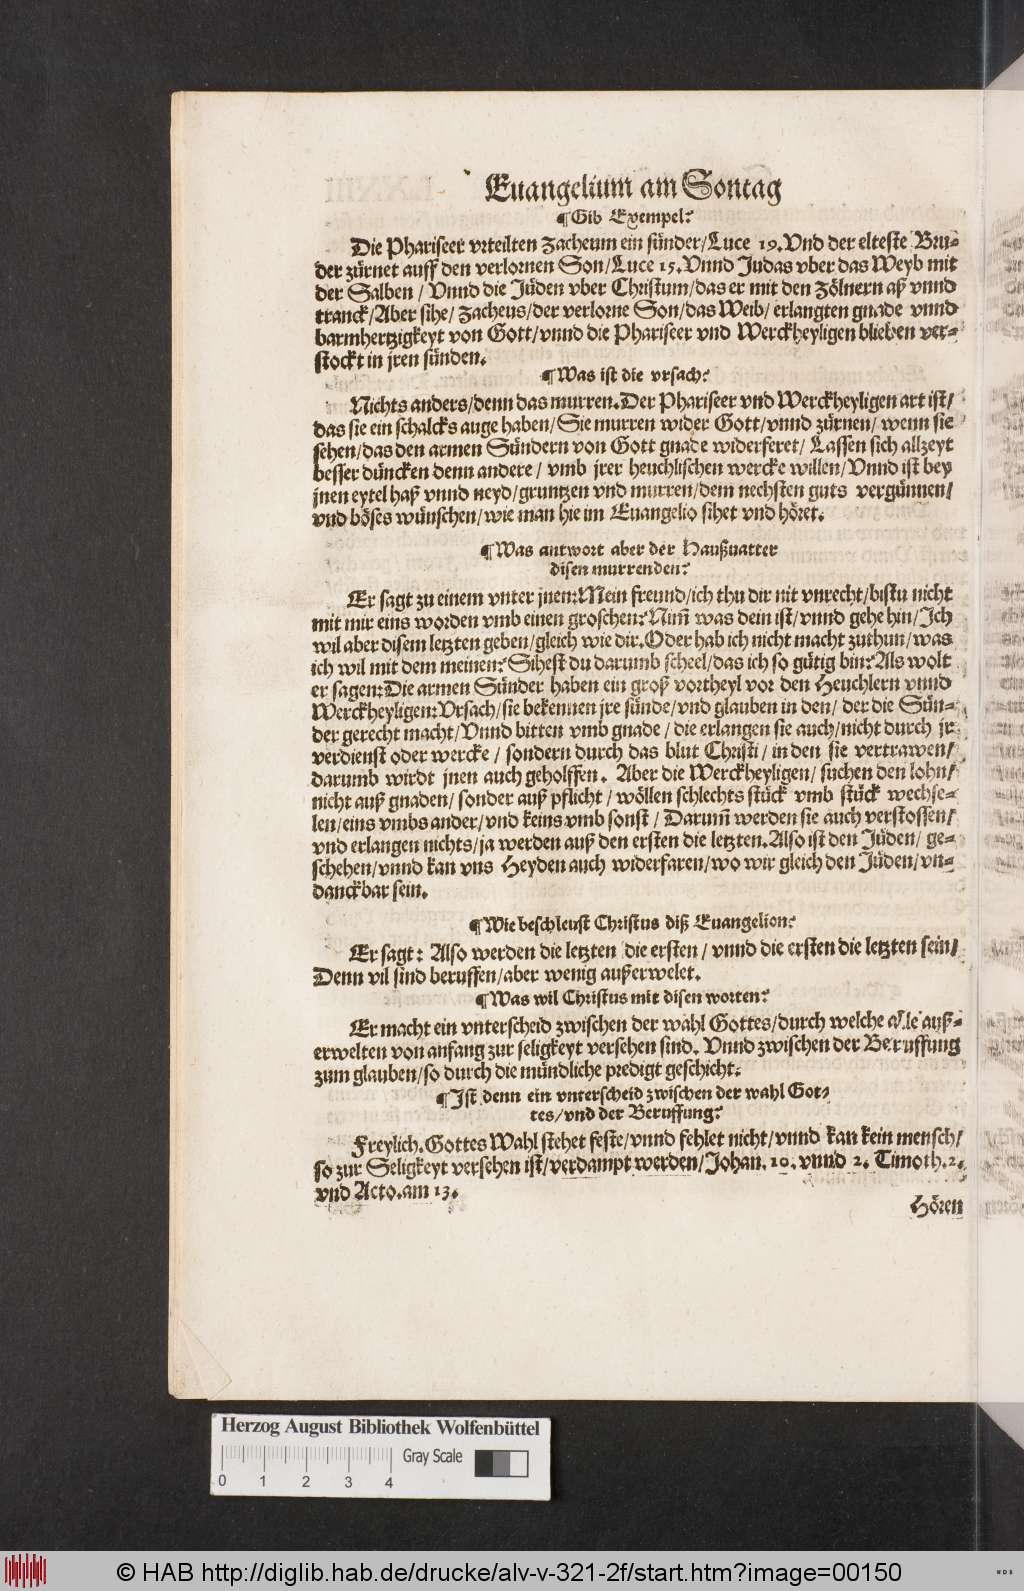 Euangelium am Sontag
¶Gib Exempel?
Die Phariseer vrteilten Zacheum ein sünder/Luce 19.Vnd der elteste Bru-
der zürnet auff den verlornen Son/Luce 15.Vnnd Judas vber das Weyb mit
der Salben / Vnnd die Jüden vber Christum/das er mit den Zölnern aß vnnd
tranck/Aber sihe/ Zacheus/der verlorne Son/das Weib/ erlangten gnade vnnd
barmhertzigkeyt von Gott/vnnd die Phariseer vnd Werckheyligen blieben ver-
stockt in jren sünden.
¶Was ist die vrsach?
Nichts anders/denn das murren.Der Phariseer vnd Werckheyligen art ist/
das sie ein schalcks auge haben/Sie murren wider Gott/vnnd zürnen/ wenn sie
sehen/das den armen Sündern von Gott gnade widerferet/ Lassen sich allzeyt
besser düncken denn andere / vmb jrer heuchlischen wercke willen/Vnnd ist bey
jnen eytel haß vnnd neyd/gruntzen vnd murren/dem nechsten guts vergünnen/
vnd böses wünschen/wie man hie im Euangelio sihet vnd höret.
¶Was antwort aber der Haußuatter
disen murrenden?
Er sagt zu einem vnter jnen:Mein freund/ich thu dir nit vnrecht/bistu nicht
mit mir eins worden vmb einen groschen?Nim̃ was dein ist/vnnd gehe hin/Ich
wil aber disem letzten geben/gleich wie dir.Oder hab ich nicht macht zuthun/was
ich wil mit dem meinen?Sihest du darumb scheel/das ich so gütig bin?Als wolt
er sagen:Die armen Sünder haben ein groß vortheyl vor den Heuchlern vnnd
Werckheyligen:Vrsach/sie bekennen jre sünde/vnd glauben in den/ der die Sün-
der gerecht macht/Vnnd bitten vmb gnade / die erlangen sie auch/nicht durch jr
verdienst oder wercke / sondern durch das blut Christi / in den sie vertrawen/
darumb wirdt jnen auch geholffen. Aber die Werckheyligen/ suchen den lohn/
nicht auß gnaden/ sonder auß pflicht / wöllen schlechts stück vmb stück wechse-
len/eins vmbs ander/vnd keins vmb sonst / Darum̃ werden sie auch verstossen/
vnd erlangen nichts/ja werden auß den ersten die letzten.Also ist den Jüden/ ge-
schehen/vnnd kan vns Heyden auch widerfaren/wo wir gleich den Jüden/vn-
danckbar sein.
¶Wie beschleust Christus diß Euangelion?
Er sagt: Also werden die letzten die ersten / vnnd die ersten die letzten sein/
Denn vil sind beruffen/aber wenig außerwelet.
¶Was wil Christus mit disen worten?
Er macht ein vnterscheid zwischen der wahl Gottes/durch welche alle auß-
erwelten von anfang zur seligkeyt versehen sind. Vnnd zwischen der Beruffung
zum glauben/so durch die mündliche predigt geschicht.
¶Ist denn ein vnterscheid zwischen der wahl Got-
tes/vnd der Beruffung?
Freylich.Gottes Wahl stehet feste/vnnd fehlet nicht/vnnd kan kein mensch/
so zur Seligkeyt versehen ist/verdampt werden/Johan. 10. vnnd 2. Timoth.2.
vnd Acto.am 13.
Hören
Herzog August Bibliothek Wolfenbüttel
Gray Scale
0 1 2 3 4
© HAB http://diglib.hab.de/drucke/alv-v-321-2f/start.htm?image=00150